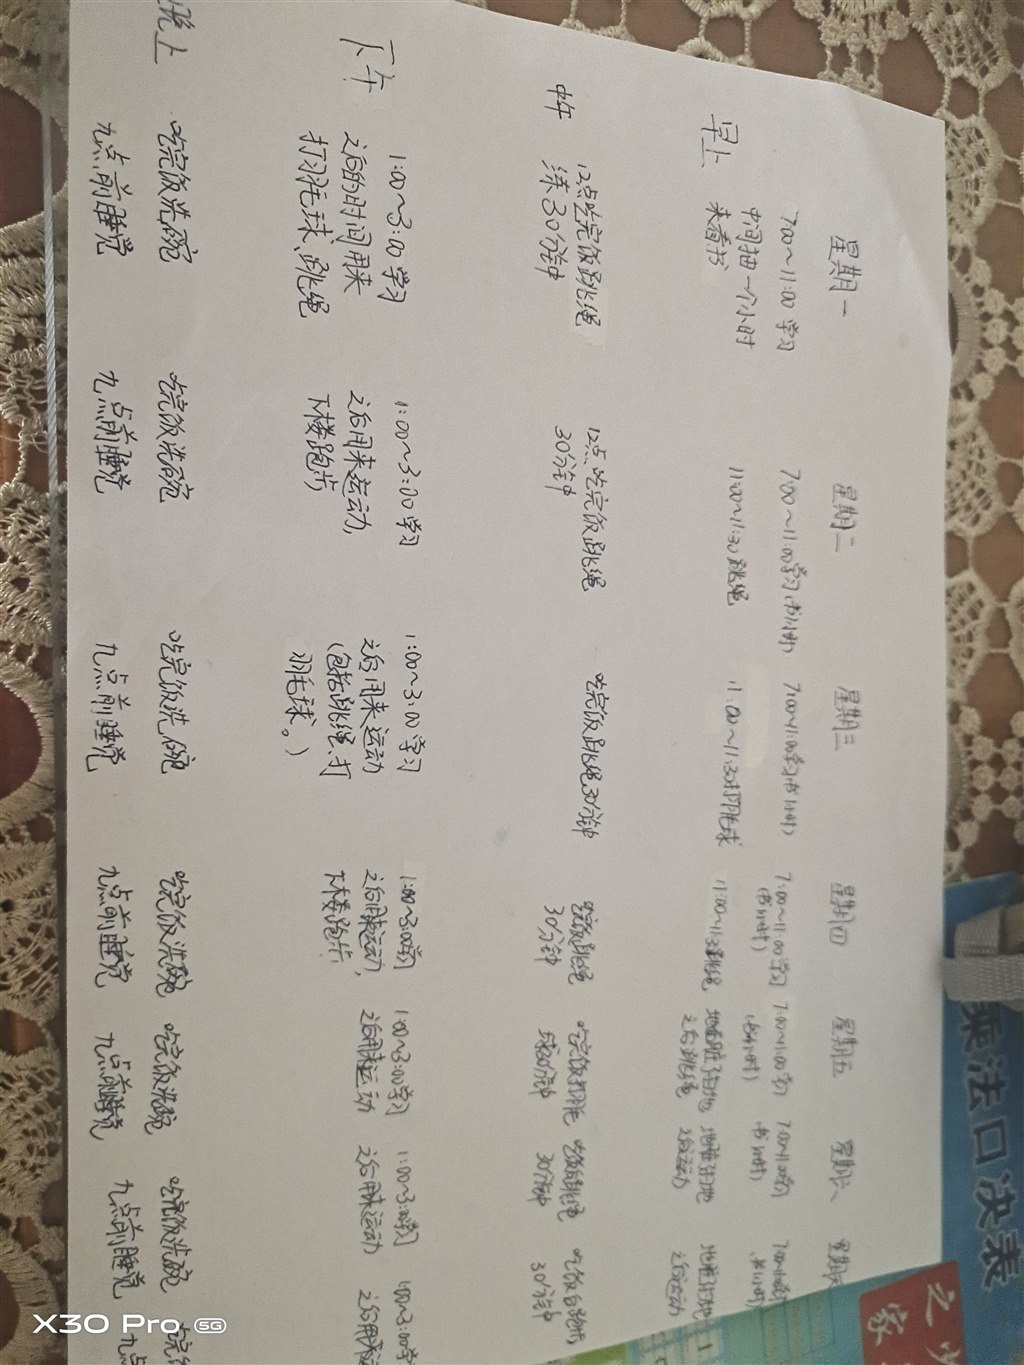 星期一
星期二
星期三
星期四
星期五
星期六
早上
7:00～11:00 学习
中间抽一个小时
来看书
7:00～11:00学习(书1小时)
11:00～11:30跳绳
7:00～11:00学习(书1小时)
11:00～11:30打羽毛球
7:00～11:00学习
(书1小时)
11:00～11:30跳绳
7:00～11:00学习
(书1小时)
地脏了扫地
之后跳绳
7:00～11:00学习
(书1小时)
地脏扫地
之后运动
7:00～11:00学习
(书1小时)
地脏扫地
之后运动
中午
12点吃完饭跳绳
练30分钟
12点吃完饭跳绳
30分钟
吃完饭跳绳30分钟
吃完饭跳绳
30分钟
吃完饭打羽毛
球30分钟
吃完饭跳绳
30分钟
吃饭后跑步
30分钟
下午
1:00～3:00 学习
之后的时间用来
打羽毛球、跳绳
1:00～3:00 学习
之后用来运动,
下楼跑步
1:00～3:00 学习
之后用来运动
(包括跳绳、打
羽毛球。)
1:00～3:00学习
之后用来运动,
下楼跑步
1:00～3:00学习
之后用来运动
1:00～3:00学习
之后用来运动
1:00～3:00学
之后用来运
晚上
吃完饭洗碗
九点前睡觉
吃完饭洗碗
九点前睡觉
吃完饭洗碗
九点前睡觉
吃完饭洗碗
九点前睡觉
吃完饭洗碗
九点前睡觉
吃完饭洗碗
九点前睡觉
吃完
九点
乘法口决表
之家
X30 Pro 5G